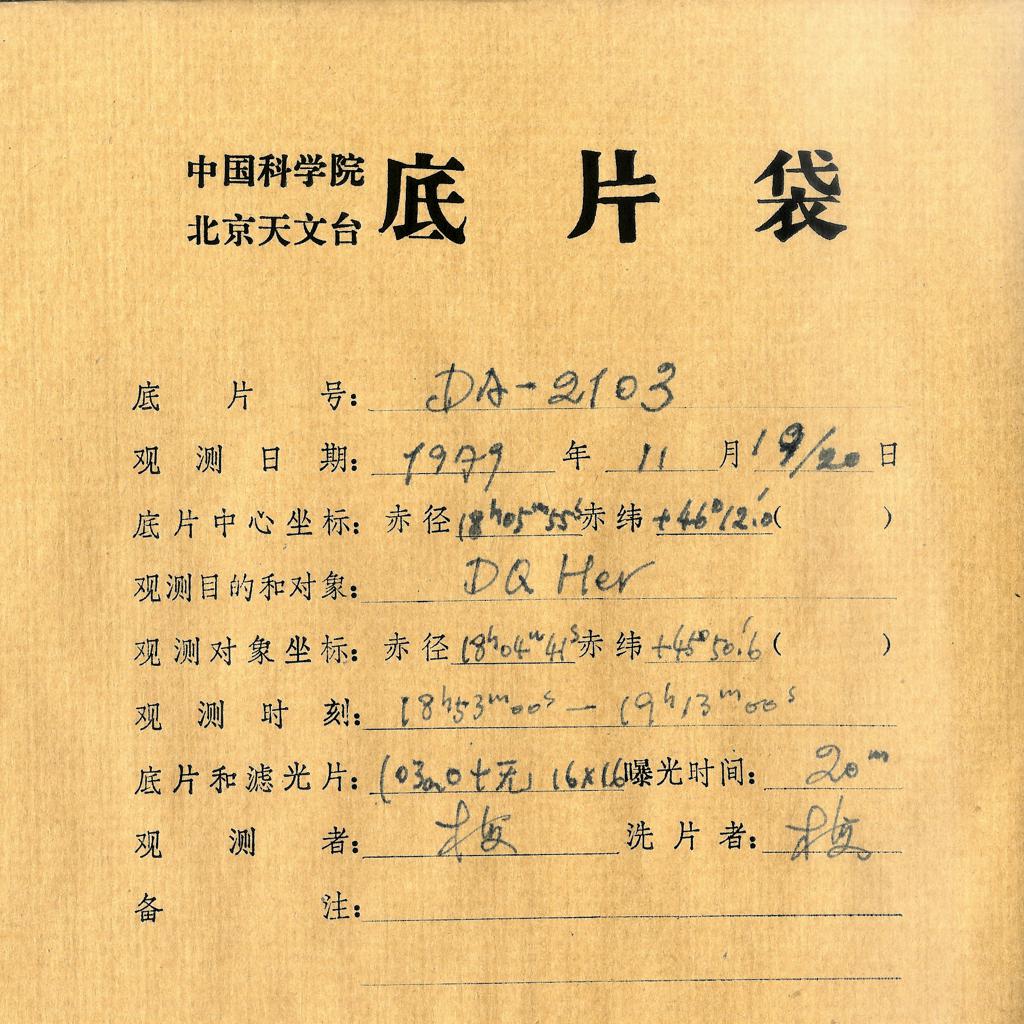 中国科学院
北京天文台
底片袋
底片号: DA-2103
观测日期: 1979年11月19/20日
底片中心坐标: 赤径18h05m55s赤纬+46°12.'0( )
观测目的和对象: DQ Her
观测对象坐标: 赤径18h04m41s赤纬+45°50.'6( )
观测时刻: 18h53m00s — 19h13m00s
底片和滤光片: (03a0+无) 16×16曝光时间: 20m
观测者: 洗片者:
备注: